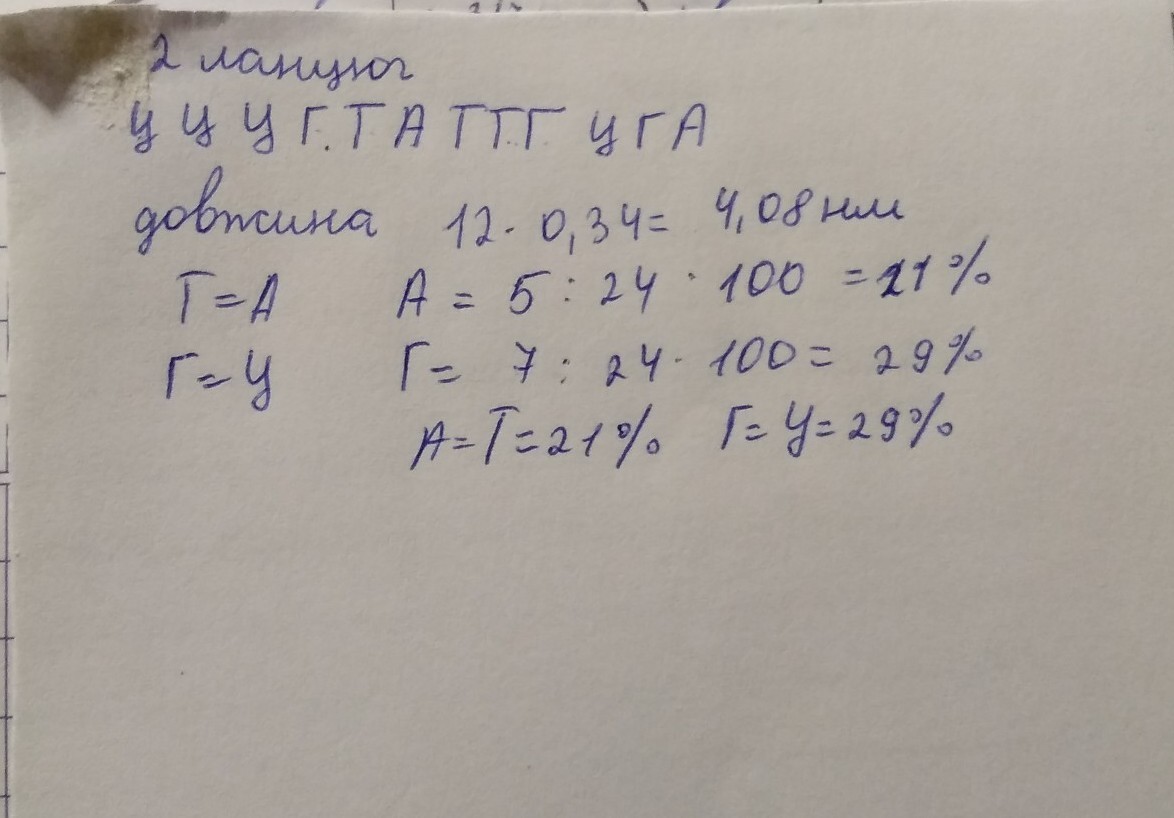 2 ланцюг
Ц Ц Ц Г. Т А Т Т Г Ц Г А
довжина 12 · 0,34 = 4,08 нм
Т = А А = 5 : 24 · 100 = 21%
Г = Ц Г = 7 : 24 · 100 = 29%
А = Т = 21% Г = Ц = 29%